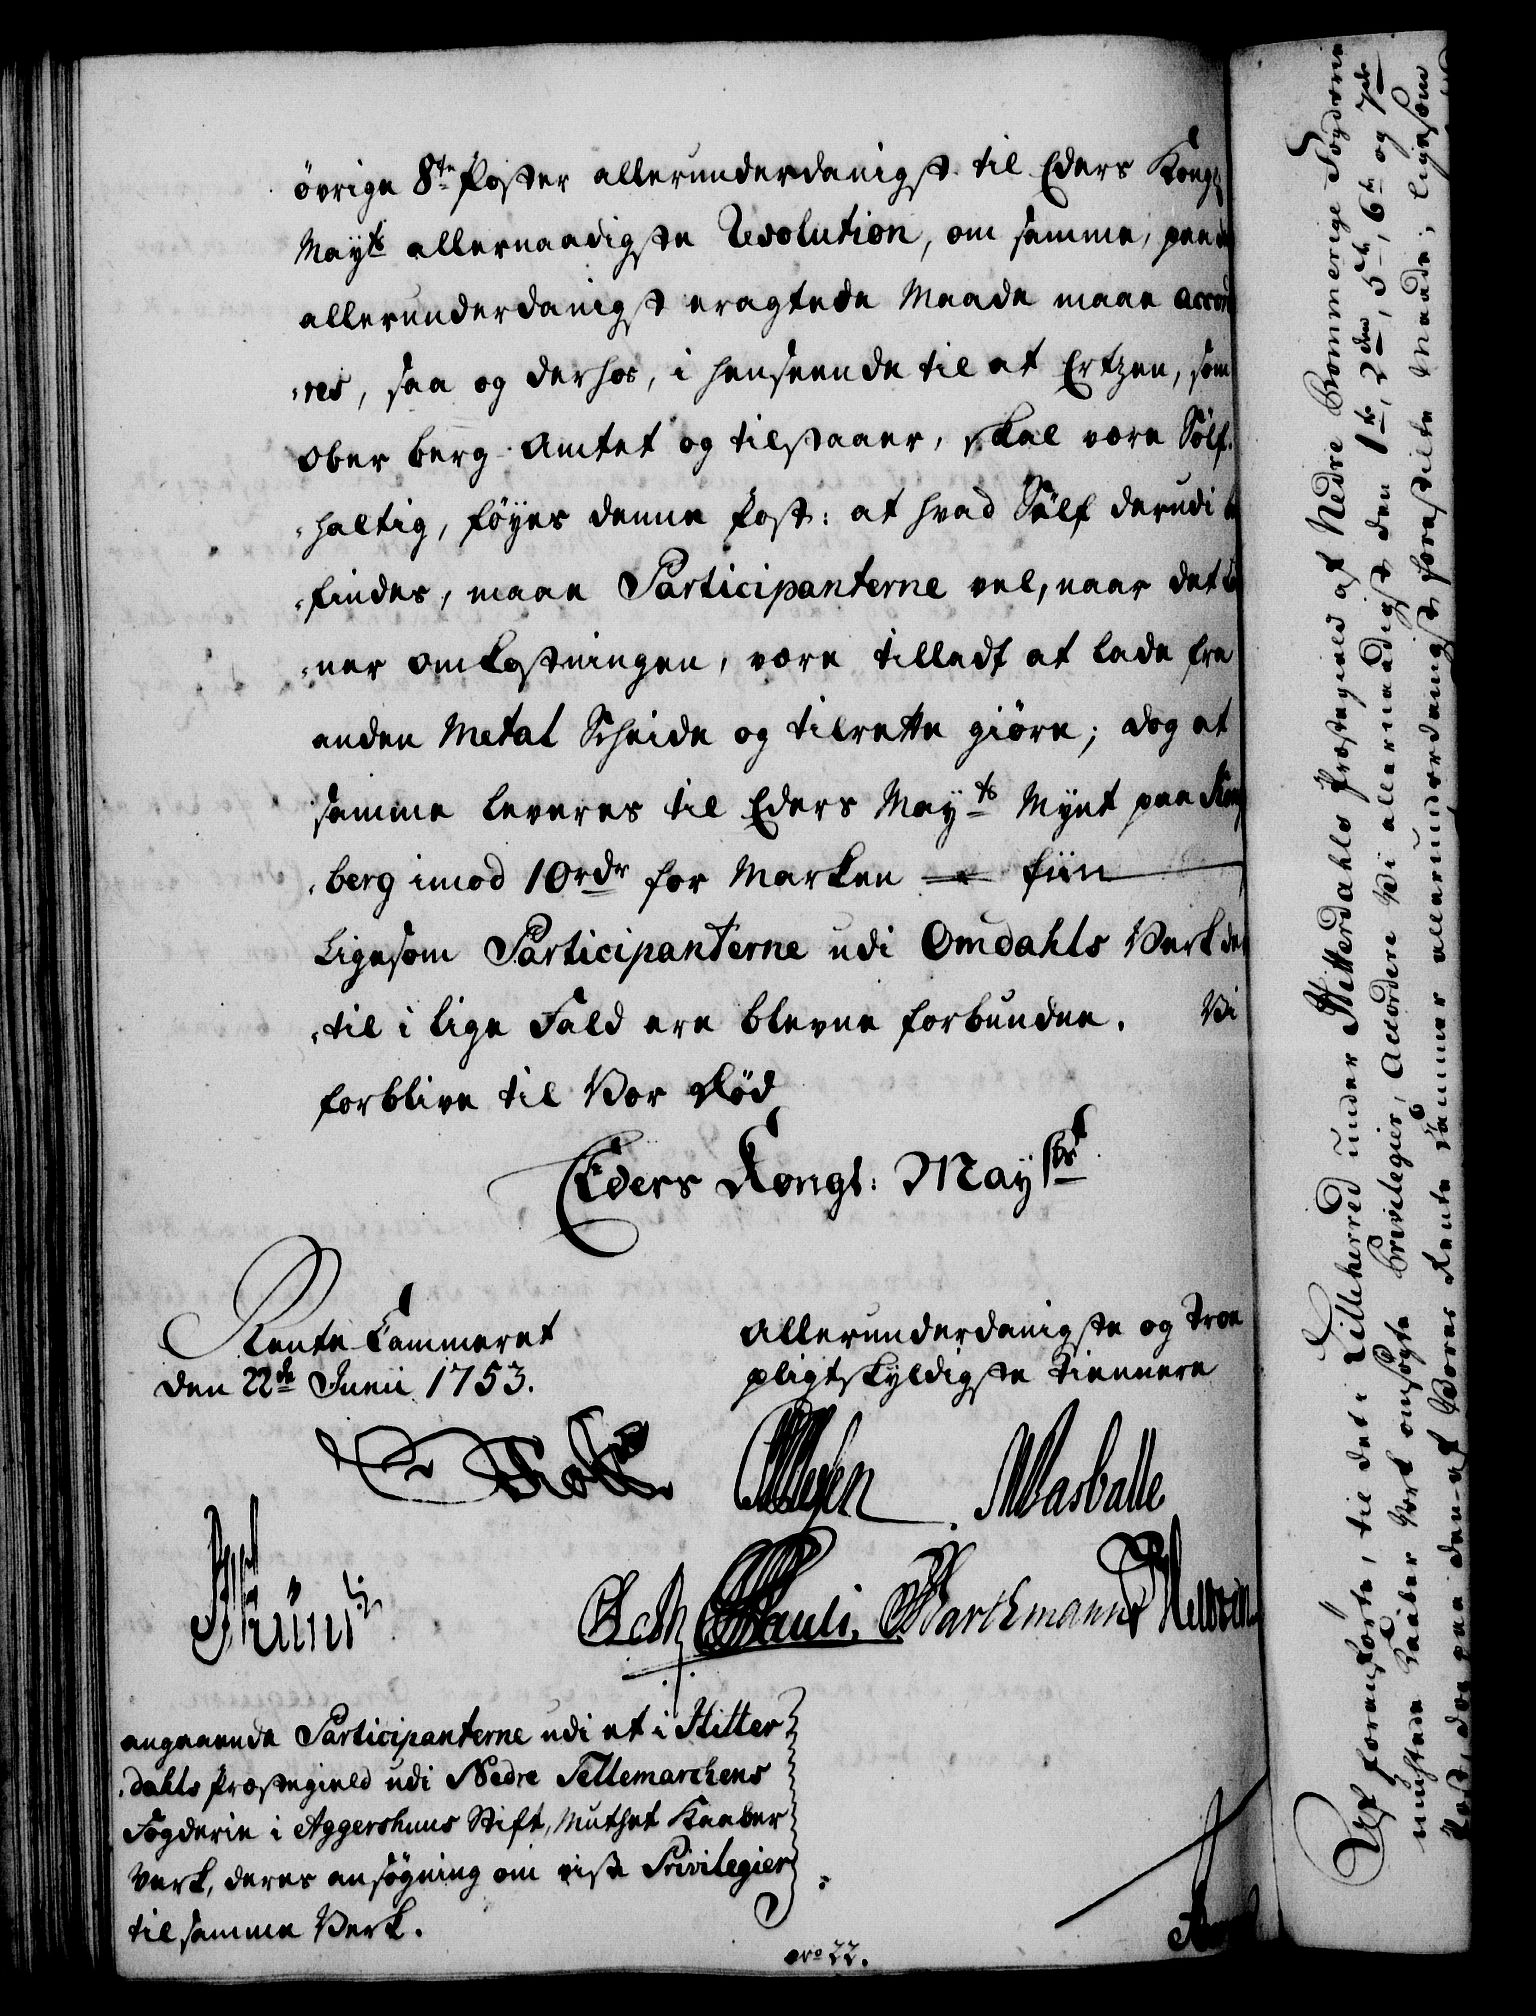 övrige 8te Poster allerunderdanigst til Eders Kongl
Mayts allernaadigste Resolution, om samme, paa
allerunderdanigst eragtede Maade maae accord
res, saa og derhos, i henseende til at Ertzen, som
Ober Berg-Amtet og tilstaaer, skal være Sölf-
haltig, föyes denne Post: at hvad Sölf derudi be
findes, maae Participanterne vel, naar det
ner omkostningen, være tilladt at lade fra
anden Metal Scheide og tilrette giöre; dog at
samme leveres til Eders Mayts Mynt paa Kong
berg imod 10 rdr for Marken fiin
Ligesom Participanterne udi Omdahls Verk der
til i lige Fald ere blevne forbunden. Vi
forblive til Vor Död
Eders Kongl: Maysts
Rente Cammeret
den 22de Junii 1753.
Allerunderdanigste og Troe
pligtskyldigste Tiennere
Wasballe
Pauli. Barthmann
angaaende Participanterne udi et i Hitter
dahls Præstegield udi Nedre Tellemarckens
Fogderie i Aggershuus Stift, Muthet Kaaber
Verk, deres ansögning om visse Privilegier
til samme Verk.
nro 22.
Paa foranförte, til det i Lilleherred under Hitterdahls Præstegield af Nedre Bommerige Fogderie
muthede Kaaber Verk omsögte Privilegier, Accordere Vi allernaadigst den 1te, 2den, 5te, 6te og 7de
Post, dog paa den af Vores Rente Kammer allerunderdanigst forestilte Maade; ligesom